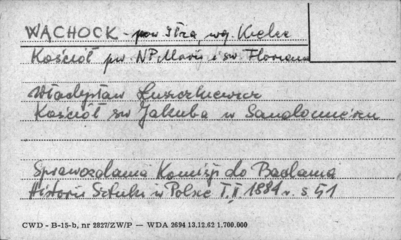 WĄCHOCK - pow Iłża, wg. Kielce
Kościół pw. NP Marii i św. Floriana
Władysław Łuszczkiewicz
Kościół św Jakuba w Sandomierzu
Sprawozdania Komisji do Badania
Historii Sztuki w Polsce T. II 1881 r. s 51
CWD - B-15-b, nr 2827/ZW/P — WDA 2694 13.12.62 1.700.000